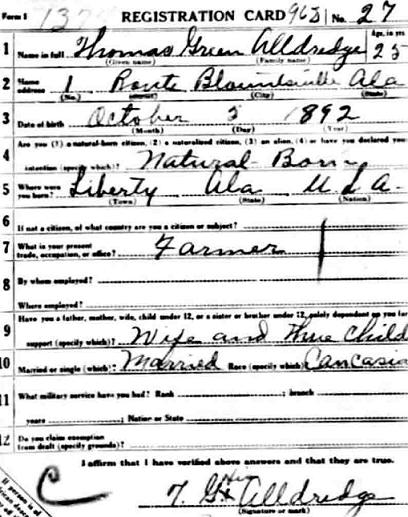 Form 1 REGISTRATION CARD No. 27
Age, in yrs.
1 Name in full Thomas Green Alldredge 25
(Given name) (Family name)
2 Name address 1 Route Blountsville Ala
(No.) (Street) (City) (State)
3 Date of birth October 3 1892
(Month) (Day) (Year)
Are you (1) a natural-born citizen, (2) a naturalized citizen, (3) an alien, (4) or have you declared your
4 intention (specify which)? Natural-Born
5 Where were you born? Liberty Ala U S A-
(Town) (State) (Nation)
6 If not a citizen, of what country are you a citizen or subject?
7 What is your present trade, occupation, or office? Farmer
8 By whom employed?
Where employed?
Have you a father, mother, wife, child under 12, or a sister or brother under 12, solely dependent on you for
9 support (specify which)? Wife and Three Child
10 Married or single (which)? Married Race (specify which)? Caucasia
11 What military service have you had? Rank ; branch
years ; Nation or State
12 Do you claim exemption from draft (specify grounds)?
I affirm that I have verified above answers and that they are true.
C T. G. Alldredge
(Signature or mark)
If person is of